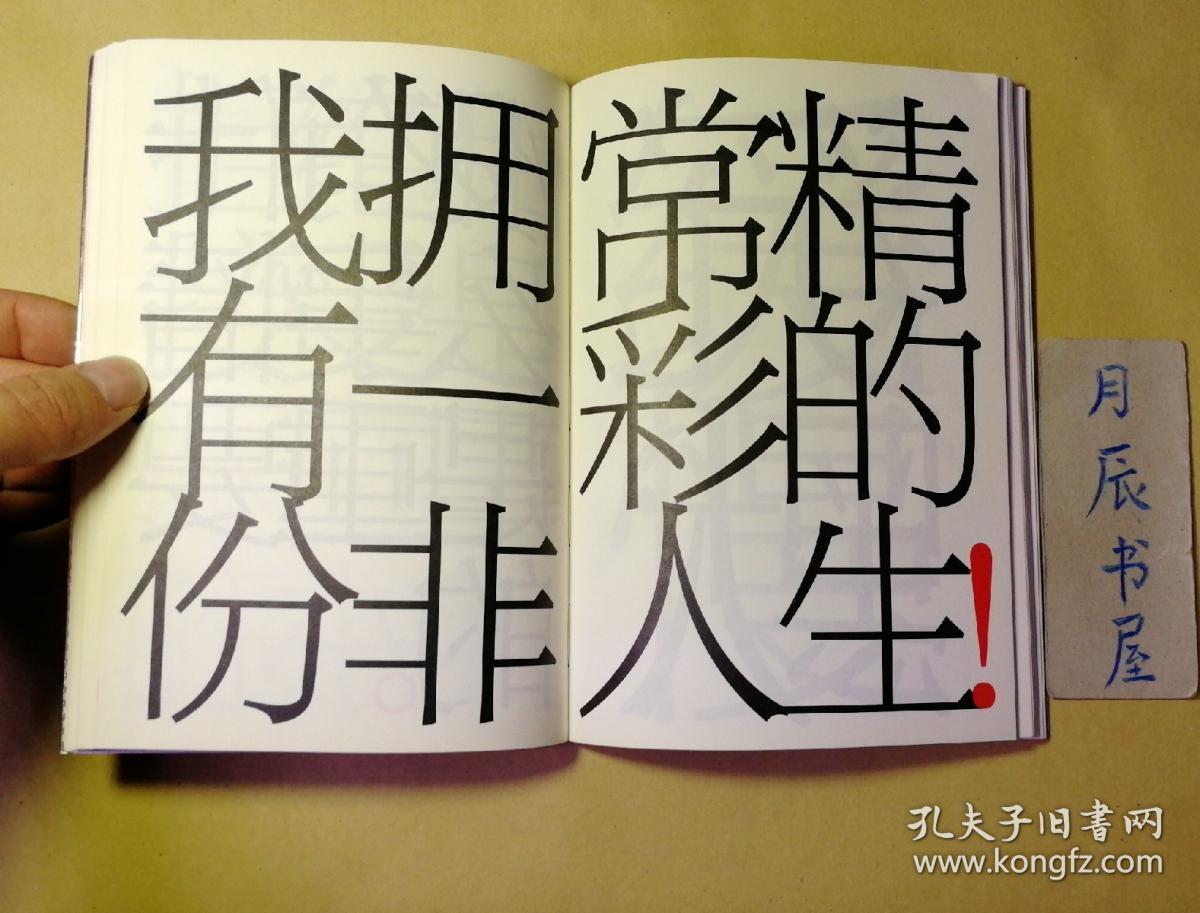 我拥常精
有一彩的
份非人生!
月辰书屋
孔夫子旧書网
www.kongfz.com